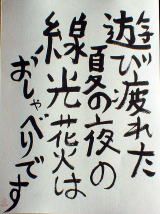 遊び疲れた
夏の夜の
線光花火は
おしゃべりです